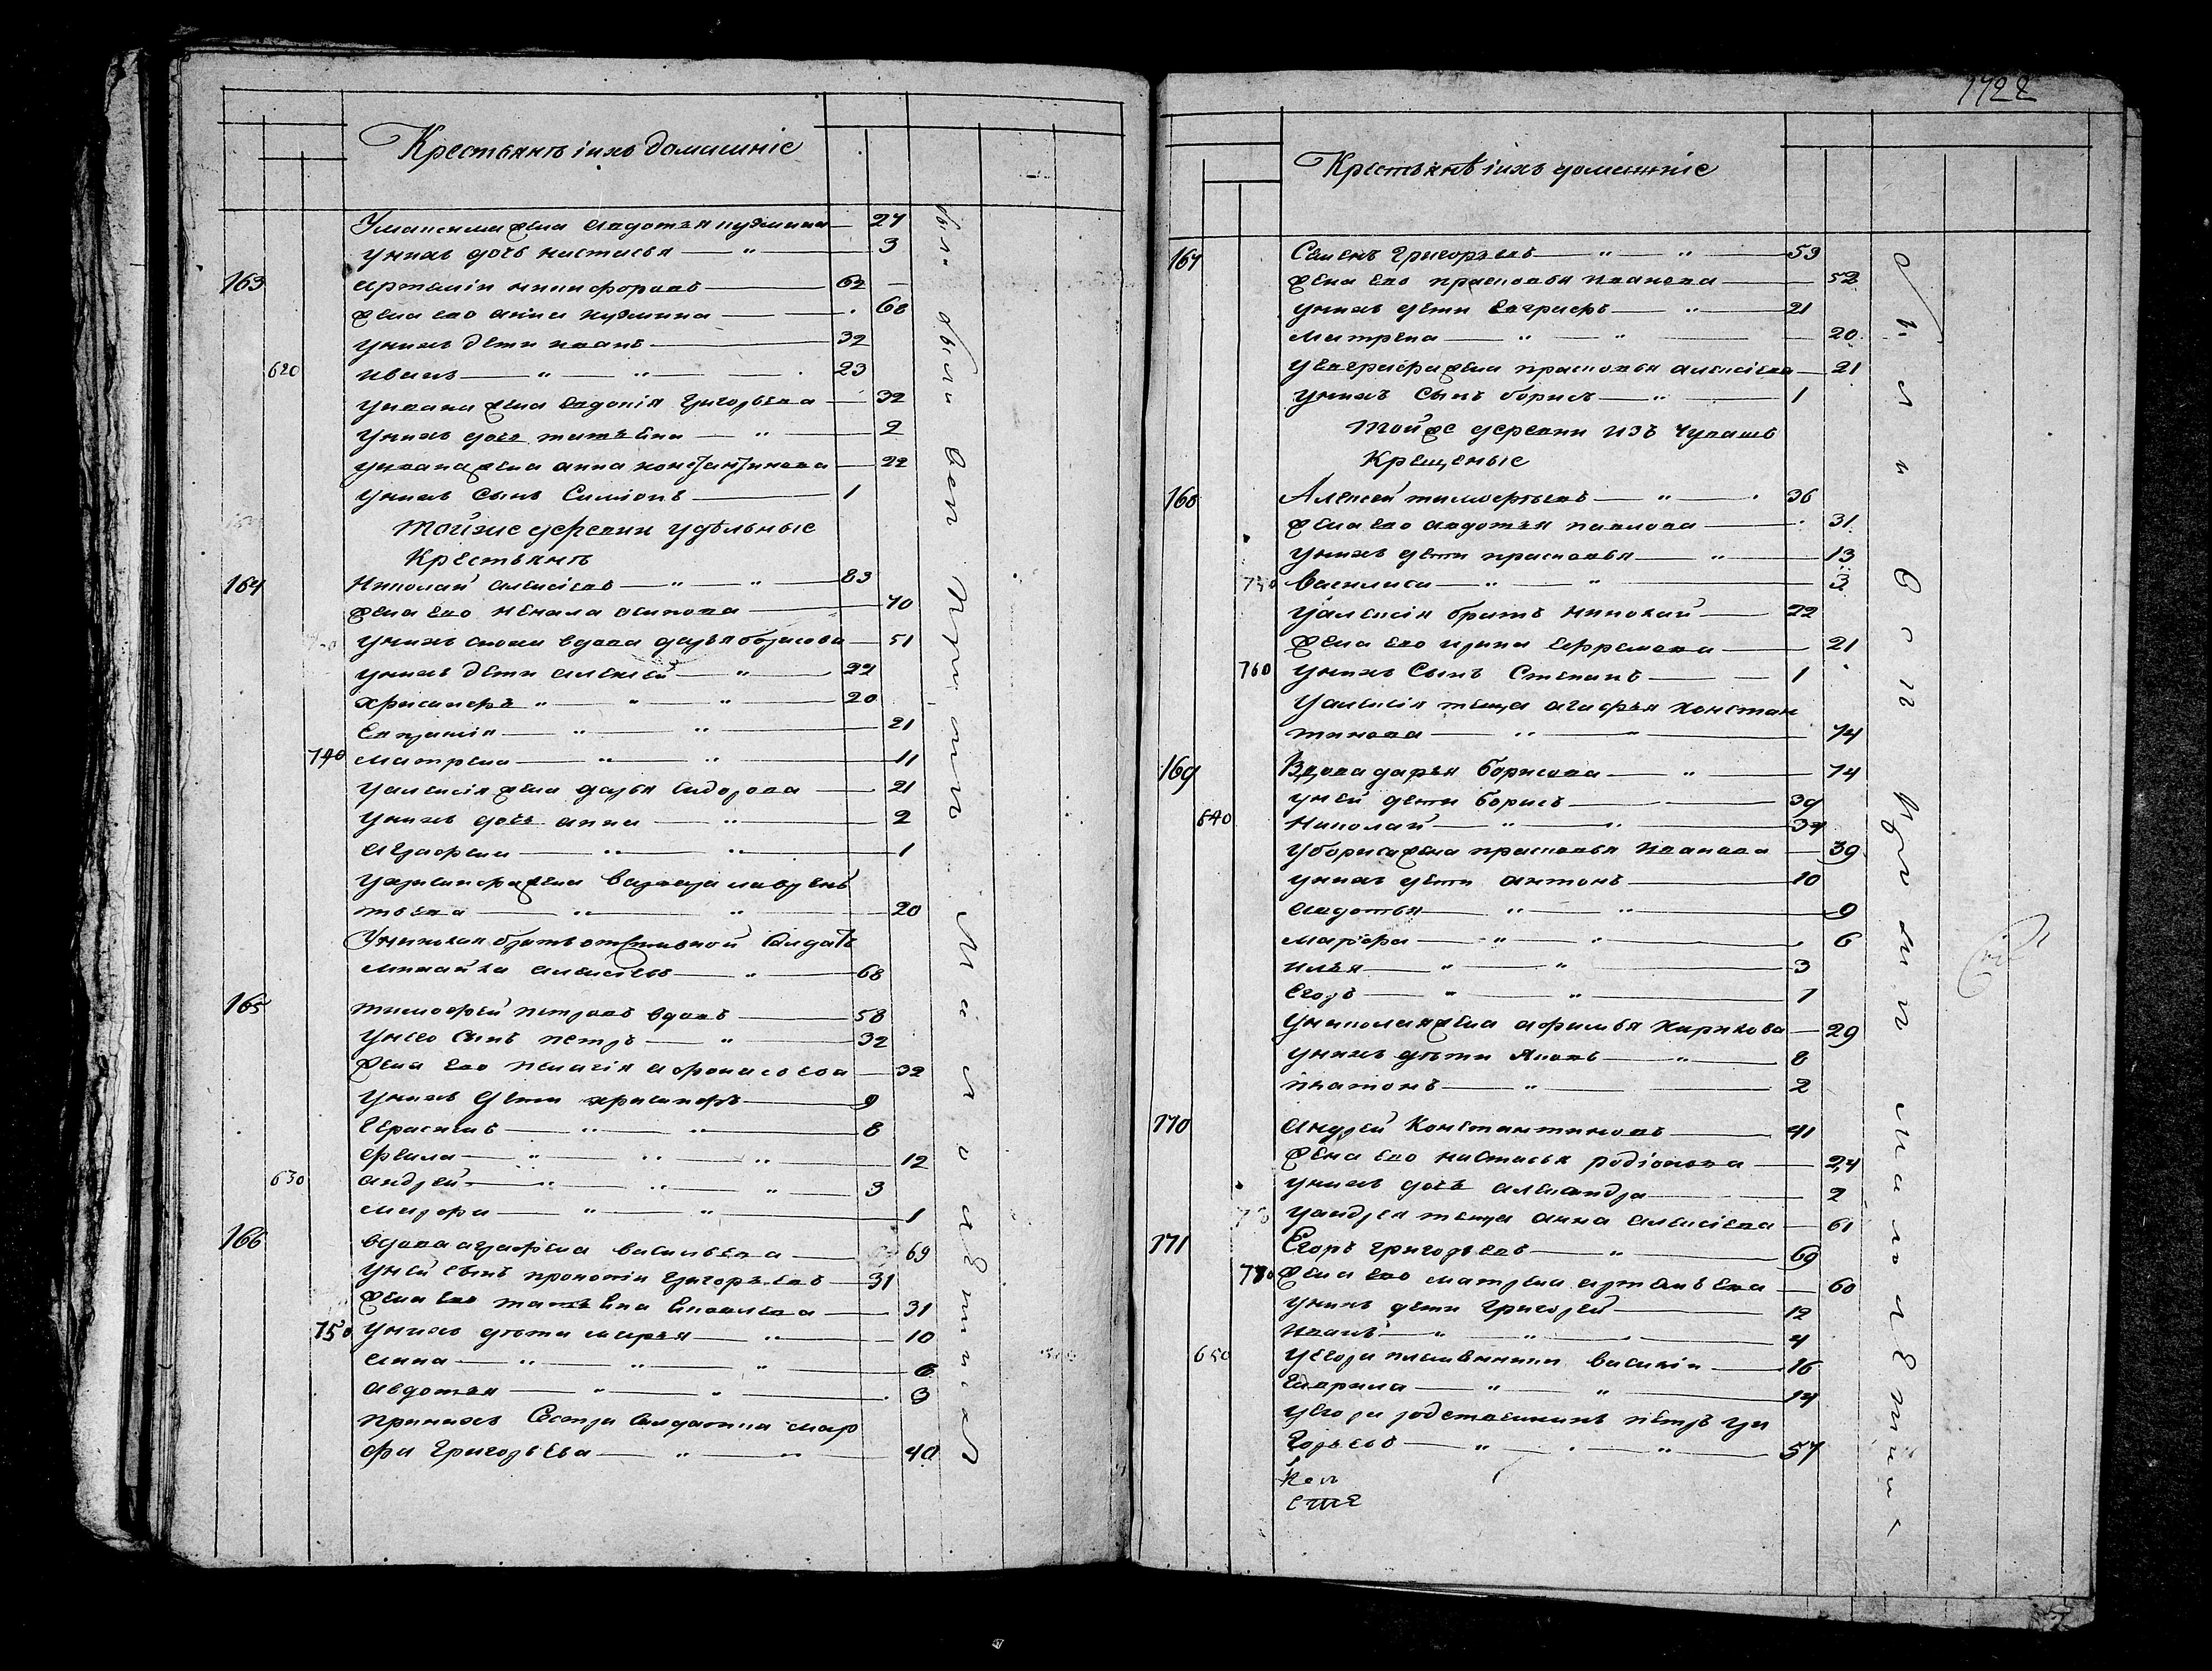 Крестьянѣ іихъ домашніе
Умаксима жена авдотья кузмина — 27
унихъ дочь настасья — " — 3
163 артамон никифоровъ — 62
жена ево анна кузмина — 60
унихъ дети иванъ — 32
620 иванъ — " — " — 23
уивана жена евдокія григорьева — 32
унихъ дочь татьяна — " — 2
уивана жена анна константинова — 22
унихъ сынъ Симіонъ — 1
Той же деревни удѣльные
Крестьянѣ
164 Николай алексіевъ — " — " — 83
жена ево осипова — 70
унихъ сноха вдова дарья борисова — 51
унихъ дети алексей — " — 22
хрисанфъ " — " — " — 20
Евпраксія — " — " — 21
740 матрена — " — " — 11
уалексія жена дарья сидорова — 21
унихъ дочь анна — " — 2
аграфена — " — " — 1
ухрисанфа жена варвара лаврень
тьева — " — " — 20
Униколая братъ отставной Салдатъ
михайла алексіевъ — " — 68
165 тимофей петровъ вдовъ — 58
унево сынъ петръ — " — 32
жена ево пелагія афонасьева — 32
унихъ дети хрисанфъ — 9
Герасимъ — " — " — 8
фекла — " — " — " — 12
630 андрей — " — " — " — 3
марфа — " — " — 1
166 вдова аграфена васильева — 69
уней сынъ прокопіи григорьевъ — 31
жена ево татьяна — 31
750 унихъ дѣти марья — " — 10
анна — " — " — " — 6
авдотья — " — " — 3
принихъ Сестра Салдатка мар
фа Григорьева — " — " — 40
были обыи Вси При ити Малолетніи
1722
Крестьянѣ іихъ домашніе
167 Семенъ григорьевъ — " — " — 53
жена ево прасковья иванова — 52
унихъ дети Евграфъ — " — 21
Матрена — " — " — 20
уевграфа жена прасковья алексіева — 21
унихъ сынъ борисъ — " — 1
Той же деревни изъ чувашъ
Крещеные
168 Алексей тимофѣевъ — " — 36
жена ево авдотья павлова — 31
унихъ дети прасковья — " — 13
Василиса — " — " — 3
Уалексія братъ николай — 22
жена ево ирина Ефремова — 21
760 унихъ сынъ Степанъ — 1
Уалексія теща агафья констан
тинова — " — " — 74
169 Вдова дарья борисова — " — 74
уней дети борисъ — 39
640 Николай — " — " — 34
убориса жена прасковья иванова — 39
унихъ дети антонъ — 10
авдотья — " — " — 9
марфа — " — " — 6
илья — " — " — 3
Егоръ — " — " — 1
униколая жена афимья харитова — 29
унихъ дѣти Яковъ — " — 8
платонъ — " — 2
170 Андрей Константиновъ — 41
жена ево настасья родіонова — 24
унихъ дочь александра — 2
уандрея теща анна алексіева — 61
171 Егоръ григорьевъ — " — 69
770 жена ево матрена артемьева — 60
унихъ дети григорей — 12
иванъ — " — " — 4
650 уегора племянники василіи — 16
гаврила — " — " — 14
уегора родственникъ петръ гри
горьевъ — " — " — 57
были Вси Прити малолетніи